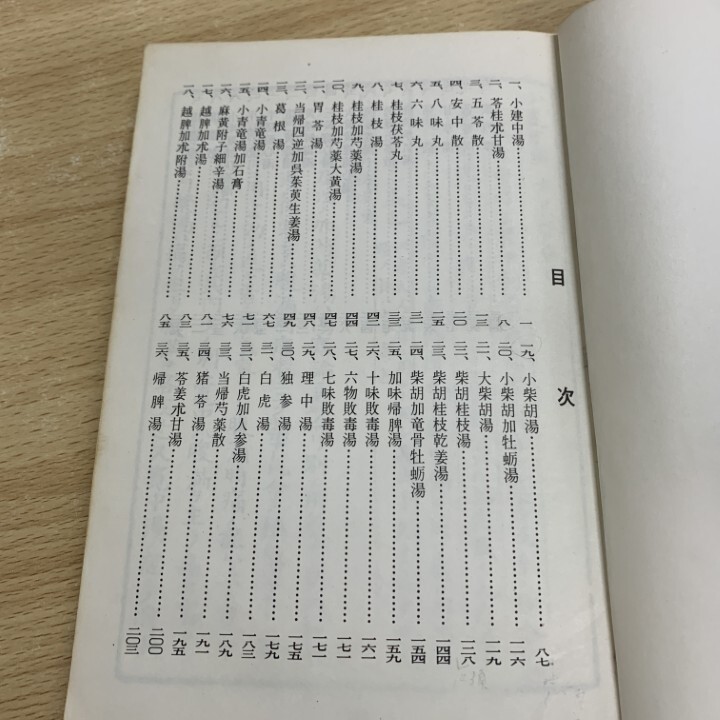 目次
一、小建中湯……一
二、苓桂朮甘湯……八
三、五苓散……一三
四、安中散……二〇
五、八味丸……二五
六、六味丸……三一
七、桂枝茯苓丸……三三
八、桂枝湯……四二
九、桂枝加芍薬湯……四四
一〇、桂枝加芍薬大黄湯……四七
一一、胃苓湯……四八
一二、当帰四逆加呉茱萸生姜湯……四九
一三、葛根湯……六七
一四、小青竜湯……七一
一五、小青竜湯加石膏……七六
一六、麻黄附子細辛湯……八一
一七、越脾加朮湯……八三
一八、越脾加朮附湯……八五
一九、小柴胡湯……八七
二〇、小柴胡加牡蛎湯……一一六
二一、大柴胡湯……一一九
二二、柴胡桂枝湯……一三八
二三、柴胡桂枝乾姜湯……一四四
二四、柴胡加竜骨牡蛎湯……一五四
二五、加味帰脾湯……一五九
二六、十味敗毒湯……一六一
二七、六物敗毒湯……一七一
二八、七味敗毒湯……一七一
二九、理中湯……一七五
三〇、独参湯……一七九
三一、白虎湯……一八三
三二、白虎加人参湯……一八九
三三、当帰芍薬散……一九一
三四、猪苓湯……一九五
三五、苓姜朮甘湯……二〇〇
三六、帰脾湯……二〇三